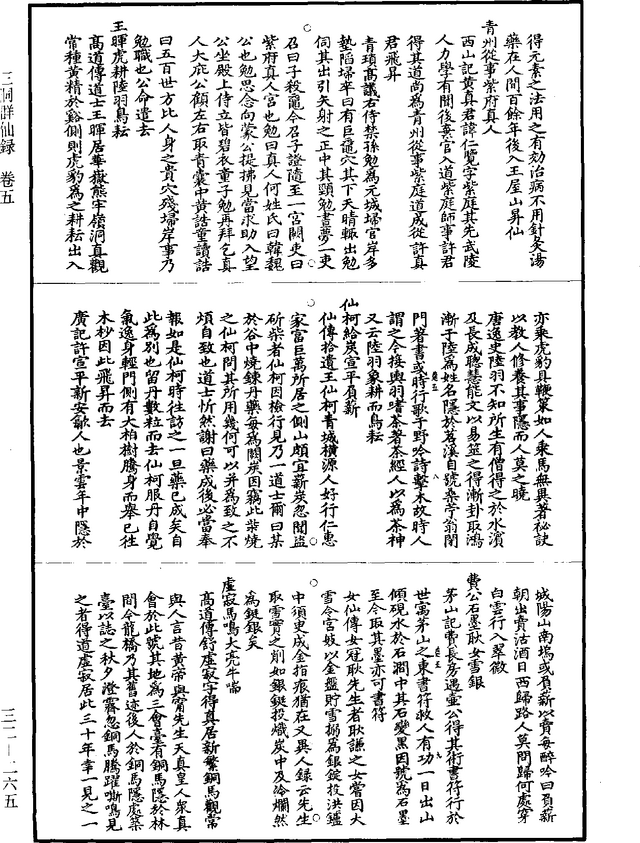 得元素之法用之有効治病不用針灸湯
藥在人間百餘年後入王屋山昇仙
青州從事紫府真人
西山記黃真君諱仁覽字紫庭其先武陵
人力學有聞後棄官入道紫庭師事許君
得其道尚為青州從事紫庭道成從許真
君飛昇
青瑣高議右侍禁孫勉為元城埽官岸多
墊陷埽卒曰有巨黿穴其下天晴輒出勉
伺其出引矢射之正中其頸勉晝夢一吏
召曰子殺黿令召子證隨王一宮闕吏曰
紫府真人宮也勉曰真人何姓氏曰韓魏
公也勉思念向蒙公提拂見當求助入望
公坐殿上侍立皆碧衣童子勉再拜乞真
人大庇公顧左右取青囊中黃誥童讀誥
曰五百世方比人身之貴穴殘埽岸事乃
勉職也公命遣去
王暉虎耕陸羽鳥耘
高道傳道士王暉居華嶽熊牢嶺洞真觀
常種黃精於谿側則虎豹為之耕耘出入
亦乘虎豹具鞭策如人乘馬無異著祕訣
以教人修養其事隱而人莫之曉
唐逸史陸羽不知所生有僧得之於水濱
及長成聰慧能文以易筮之得漸卦取鴻
漸于陸為姓名隱於苕溪自號桑苧翁閉
門著書或時行歌于野吟詩擊木故時人
謂之今接輿羽嗜茶著茶經人以為茶神
又云陸羽象耕而鳥耘
仙柯給炭宣平負薪
仙傳拾遺王仙柯青城橫源人好行仁惠
家富巨萬所居之側山頗宜薪炭忽聞盜
斫柴者仙柯因檢行見乃一道士爾曰某
於谷中燒鍊丹藥每為闕炭因竊此柴燒
之仙柯問其所用幾何可以并為致之不
煩自致也道士忻然謝曰藥成後必當奉
報如是仙柯時往訪之一旦藥已成矣自
此為別也留丹數粒而去仙柯服丹自覺
氣逸身輕門側有大柏樹騰身而舉已往
木杪因此飛昇而去
廣記許宣平新安歙人也景雲年中隱於
城陽山南塢或負薪以賣每醉吟曰負薪
朝出賣沽酒日西歸路人莫問歸何處穿
白雲行入翠微
費公石墨耿女雪銀
茅山記費長房遇壺公得其術書符行於
世寓茅山之東書符救人有功一日出山
傾硯水於石澗中其石變黑因號為石墨
至今取其墨亦可書符
女仙傳女冠耿先生者耿謙之女當因大
雪令宮妓以金盤貯雪搦為銀錠投洪鑪
中須吏成金指痕猶在又異人錄云先生
取雪實之削如銀鋌投熾炭中及冷爛然
為鋌銀矣
虛寂馬鳴大亮牛喘
高道傳舒虛寂字得真居新繁銅馬觀常
與人言昔黃帝與甯先生天真皇人眾真
會於此號其地為三會臺有銅馬隱於林
間今龍橋乃其舊迹後人於銅馬隱處築
臺以誌之秋夕澄霽忽銅馬騰躍嘶鳴見
之者得道虛寂居此三十年幸一見之一
三洞群仙録　卷五
三二—二六五